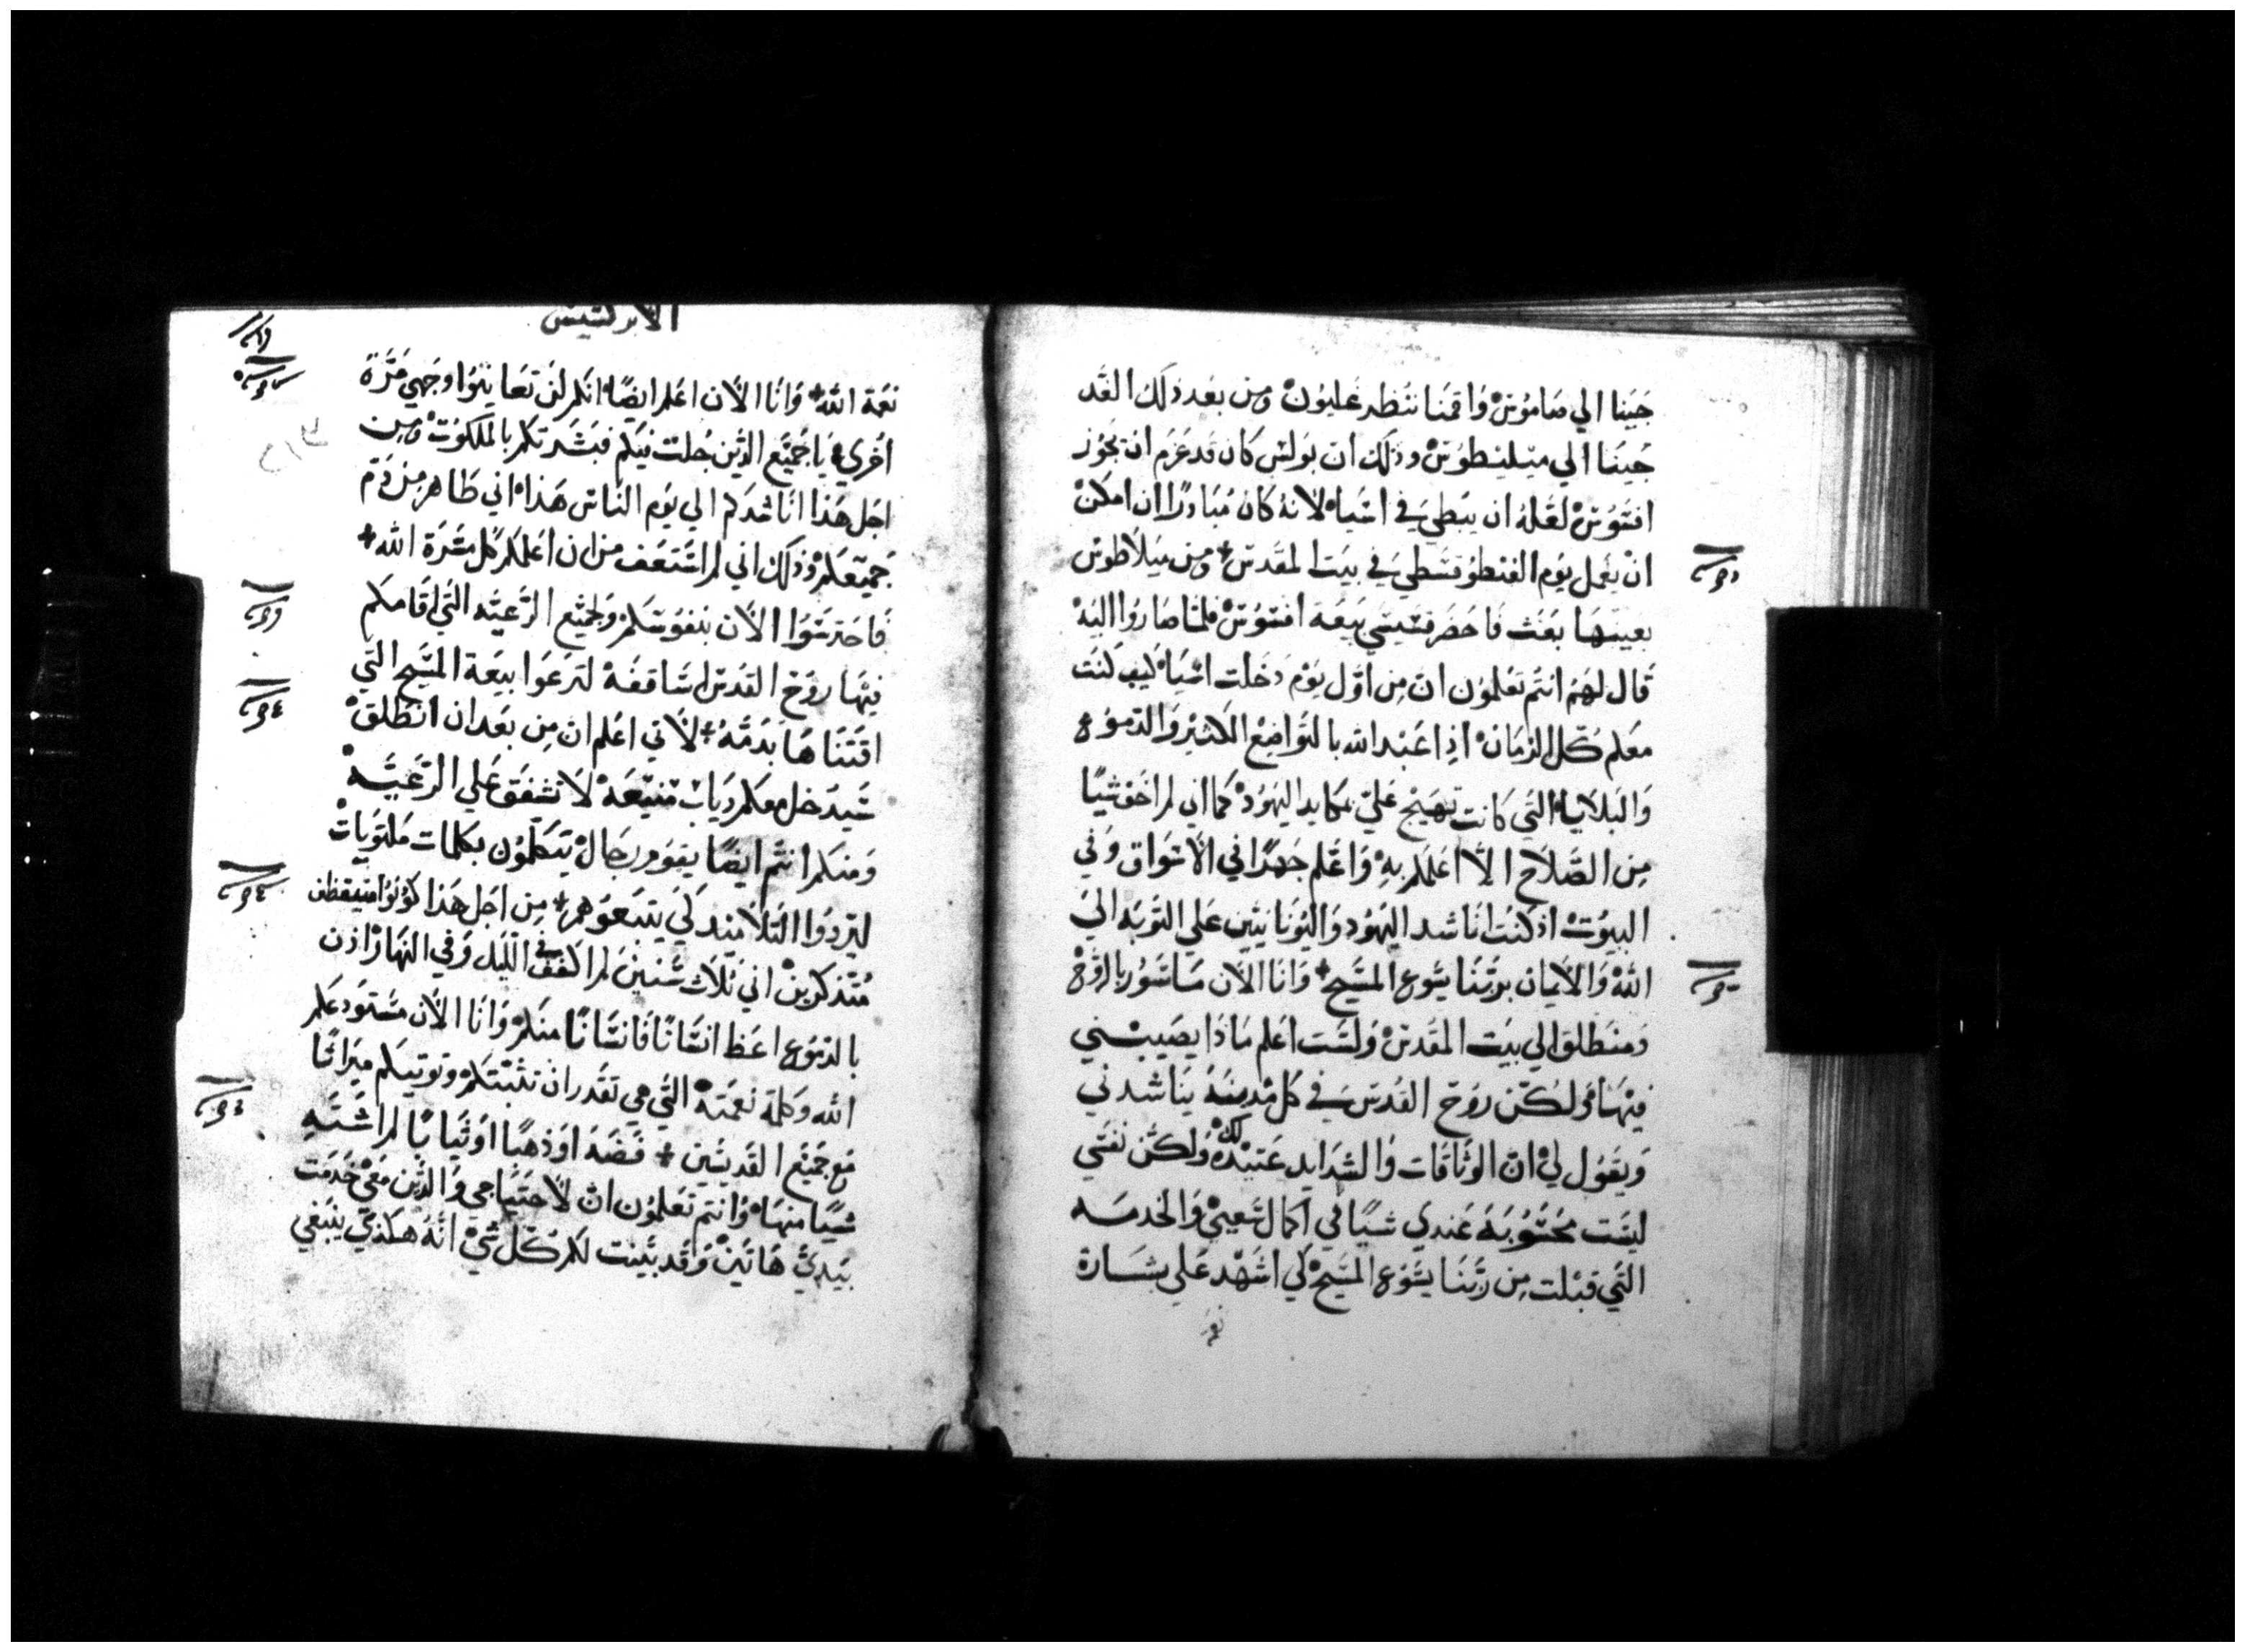 جينا الي صاموس واقمنا بنطرغليون ومن بعد ذلك الغد
جينا الي ميليطوس وذلك ان بولس كان قد عزم ان يجوز
افسوس لعله ان يبطي في اسيا لانه كان مبادرا ان امكن
ان يعمل يوم الفنطوقسطي في بيت المقدس + ومن ميلاطوس
بعينها بعث فاحضر قسيسي بيعة افسوس فلما صاروا اليه
قال لهم انتم تعلمون ان من اول يوم دخلت اسيا كيف كنت
معكم كل الزمان اذ اعبد الله بالتواضع الكثير والدموع
والبلايا التي كانت تهيج علي بمكايد اليهود كما اني لم اخف شيا
من الصلاح الا اعلمكم به واعلم جهرا في الاسواق وفي
البيوت اذ كنت اناشد اليهود واليونانيين علي التوبه الي
الله والايمان بربنا يسوع المسيح + وانا الان ماسور بالروح
ومنطلق الي بيت المقدس ولست اعلم ماذا يصيبني
فيها ولكن روح القدس في كل مدينه يناشدني
ويقول لي ان الوثاقات والشدايد عتيده لك ولكن نفسي
ليست محسوبه عندي شيا في اكمال سعيي والخدمه
التي قبلت من ربنا يسوع المسيح كي اشهد علي بشارة
نعمة
الابركسيس
نعمة الله + وانا الان اعلم ايضا انكم لن تعاينوا وجهي مرة
اخري يا جميع الذين جلت فيكم فبشرتكم بالملكوت ومن
اجل هذا اناشدكم الي يوم الناس هذا اني طاهر من دم
جميعكم وذلك اني لم استعف من ان اعلمكم كل مسرة الله +
فاحترسوا الان بنفوسكم ولجميع الرعيه التي اقامكم
فيها روح القدس اساقفه لترعوا بيعة المسيح التي
اقتناها بدمه + لاني اعلم ان من بعد ان انطلق
سيدخل معكم دياب منيعه لا تشفق علي الرعيه
ومنكم انتم ايضا يقوم رجال يتكلمون بكلمات ملتويات
ليردوا التلاميذ كي يتبعوهم + من اجل هذا كونوا متيقظين
متذكرين اني ثلاث سنين لم اكفف في الليل وفي النهار اذ
بالدموع اعظ انسانا فانسانا منكم وانا الان مستودعكم
الله وكلمة نعمته التي هي تقدر ان تثبتكم وتوتيكم ميراثا
مع جميع القديسين + فضه او ذهبا او ثيابا لم اشته
شيا منها وانتم تعلمون ان لاحتياجي والذين معي خدمت
بيدي هاتين وقد بينت لكم كل شي انه هكذي ينبغي